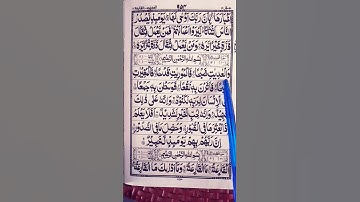 ٩٥٣
اَخْبَارَهَا بِاَنَّ رَبَّكَ اَوْحٰى لَهَا يَوْمَئِذٍ يَّصْدُرُ
النَّاسُ اَشْتَاتًا لِّيُرَوْا اَعْمَالَهُمْ فَمَنْ يَّعْمَلْ مِثْقَالَ
ذَرَّةٍ خَيْرًا يَّرَهٗ وَمَنْ يَّعْمَلْ مِثْقَالَ ذَرَّةٍ شَرًّا يَّرَهٗ
بِسْمِ اللّٰهِ الرَّحْمٰنِ الرَّحِيْمِ
وَالْعٰدِيٰتِ ضَبْحًا فَالْمُوْرِيٰتِ قَدْحًا فَالْمُغِيْرٰتِ
صُبْحًا فَاَثَرْنَ بِهٖ نَقْعًا فَوَسَطْنَ بِهٖ جَمْعًا اِنَّ
الْاِنْسَانَ لِرَبِّهٖ لَكَنُوْدٌ وَاِنَّهٗ عَلٰى ذٰلِكَ
لَشَهِيْدٌ وَاِنَّهٗ لِحُبِّ الْخَيْرِ لَشَدِيْدٌ اَفَلَا يَعْلَمُ
اِذَا بُعْثِرَ مَا فِى الْقُبُوْرِ وَحُصِّلَ مَا فِى الصُّدُوْرِ
اِنَّ رَبَّهُمْ بِهِمْ يَوْمَئِذٍ لَّخَبِيْرٌ
بِسْمِ اللّٰهِ الرَّحْمٰنِ الرَّحِيْمِ
اَلْقَارِعَةُ مَا الْقَارِعَةُ وَمَا اَدْرٰىكَ مَا الْقَارِعَةُ